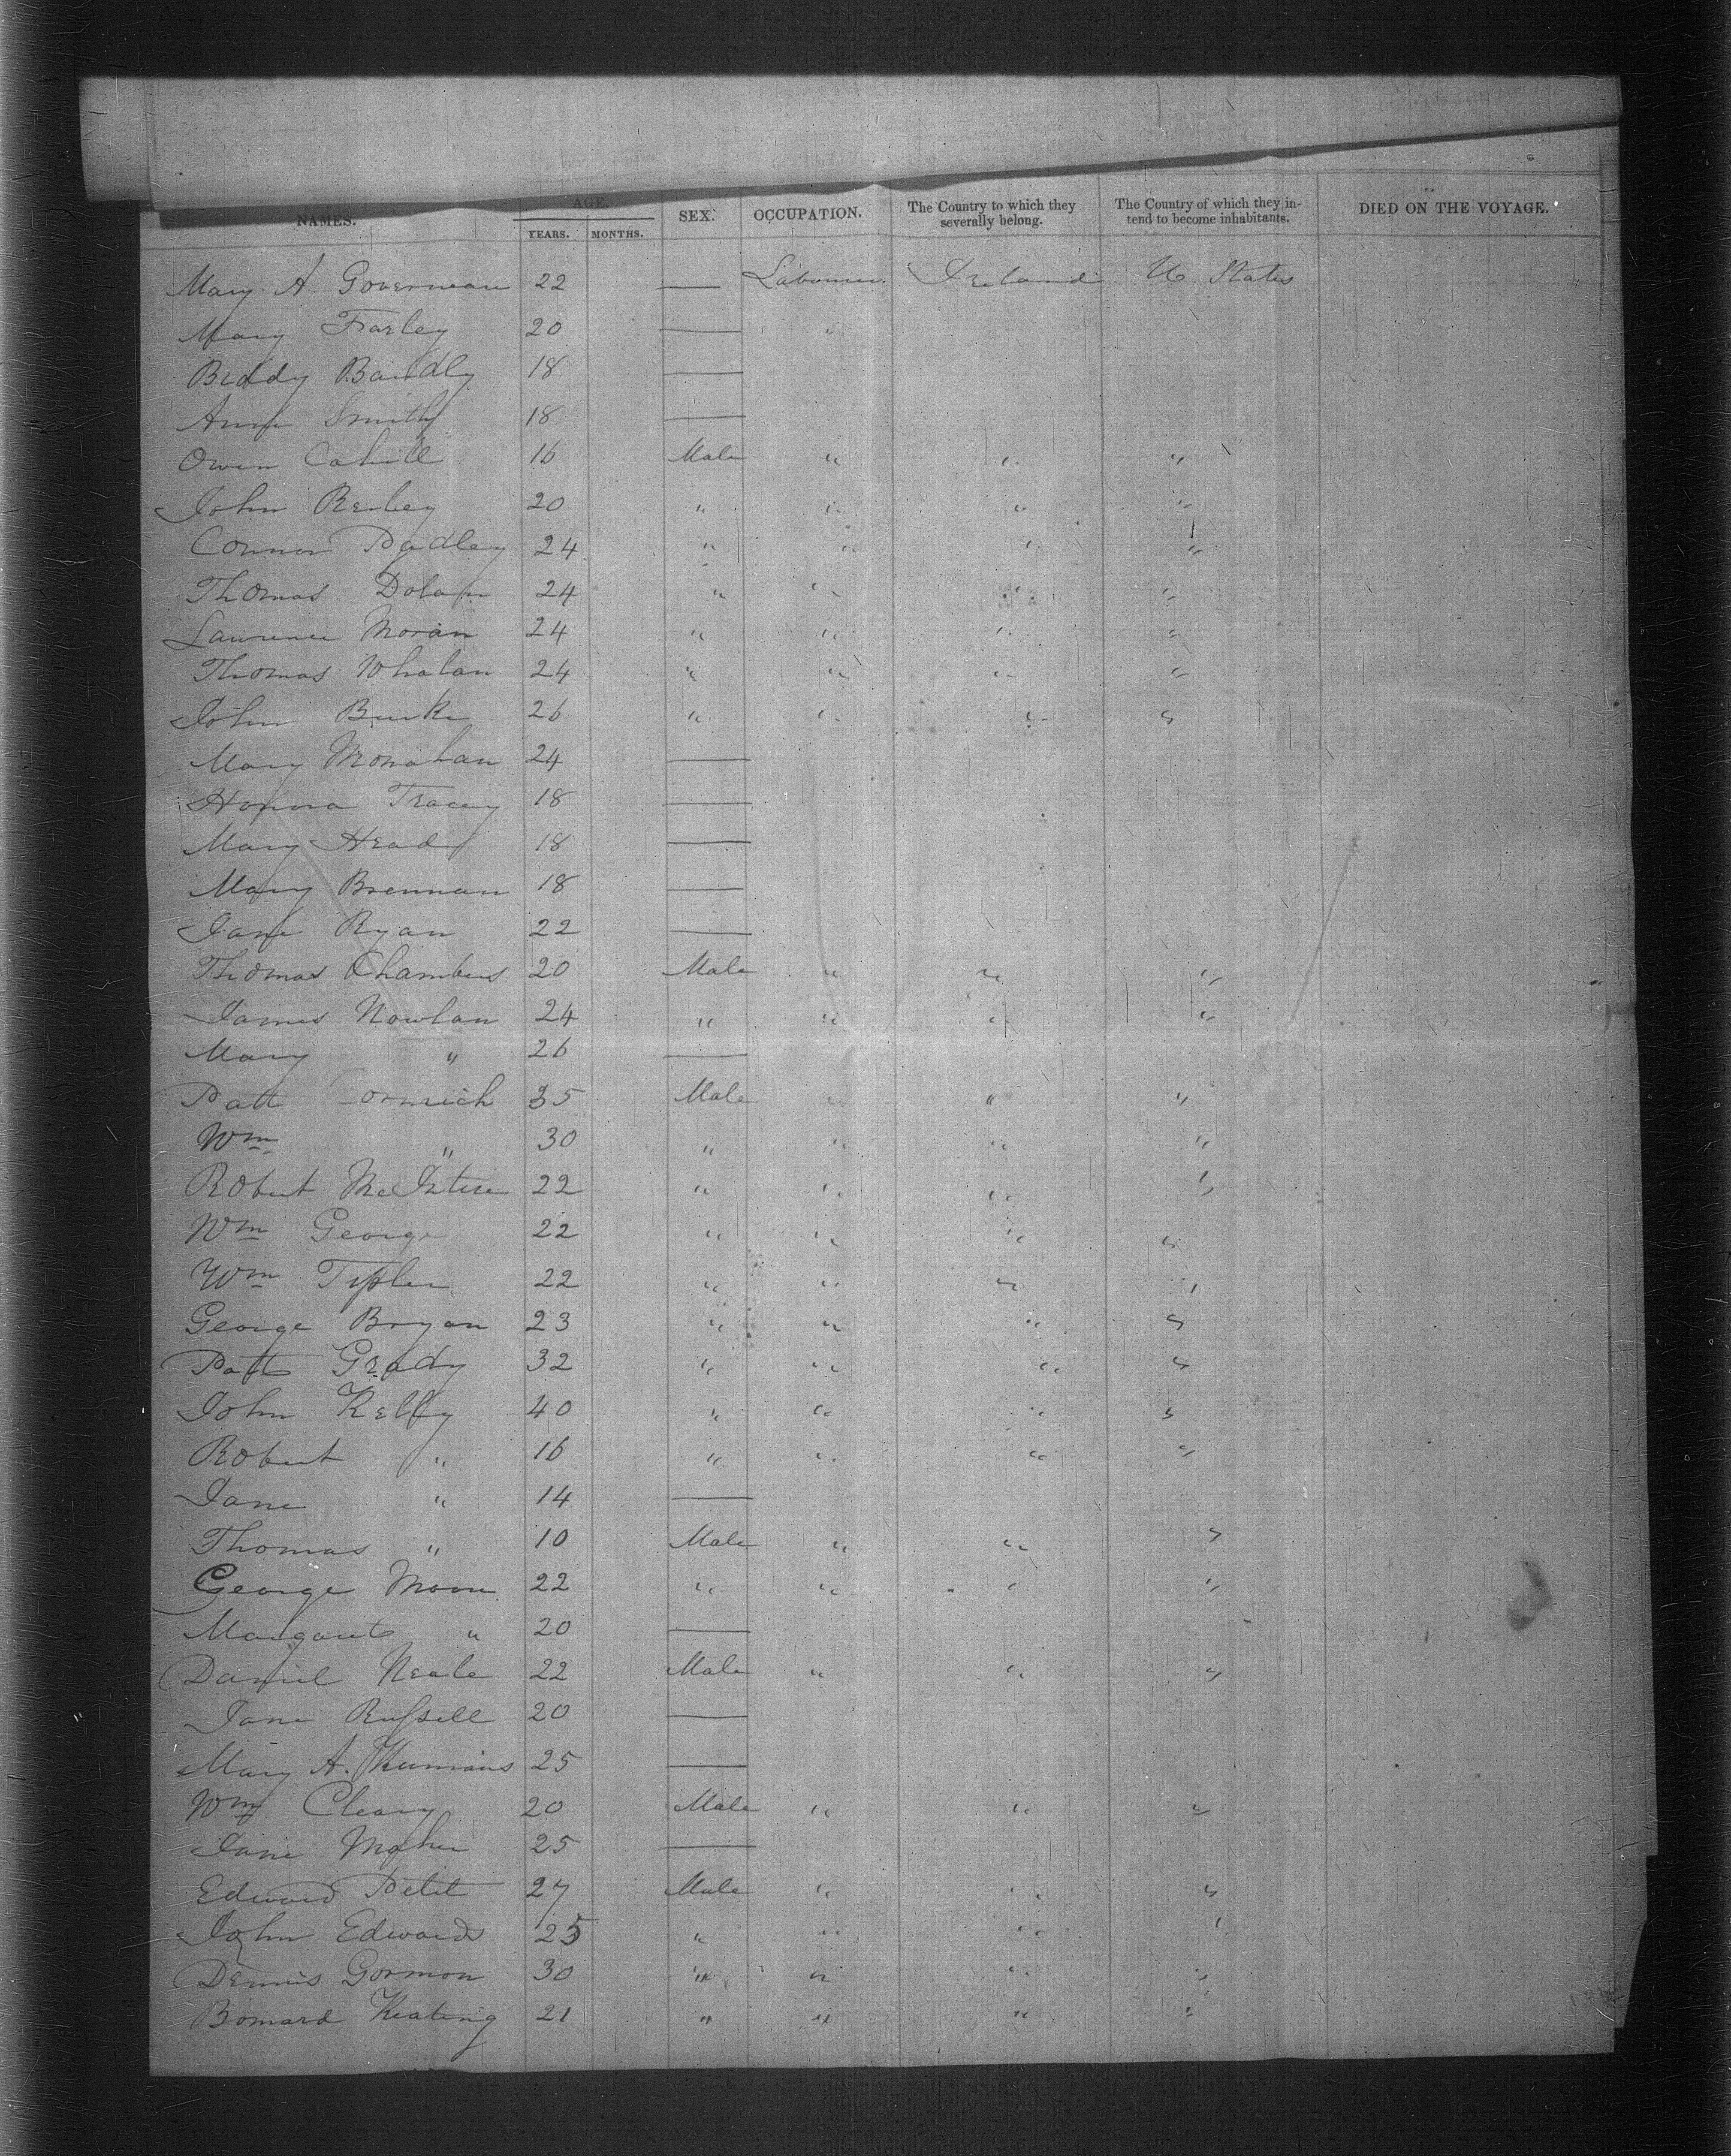 NAMES. AGE. SEX. OCCUPATION. The Country to which they severally belong. The Country of which they intend to become inhabitants. DIED ON THE VOYAGE.
YEARS. MONTHS.
Mary A. Governean 22 — Labourer Ireland U. States
Mary Farley 20 — "
Biddy Bandly 18 —
Anne Smith 18 —
Owen Cahill 16 Male " " "
John Reiley 20 " " " "
Connor Padley 24 " " " "
Thomas Dolan 24 " " " "
Lawrence Moran 24 " " " "
Thomas Whalan 24 " " " "
John Burke 26 " " " "
Mary Monahan 24 —
Honora Tracey 18 —
Mary Heady 18 —
Mary Brennan 18 —
Jane Ryan 22 —
Thomas Chambers 20 Male " " "
James Nowlan 24 " " " "
Mary " 26 —
Patt Cormick 35 Male " " "
Wm " 30 " " " "
Robert McIntire 22 " " " "
Wm George 22 " " " "
Wm Tipler 22 " " " "
George Bryan 23 " " " "
Patt Grady 32 " " " "
John Kelly 40 " " " "
Robert " 16 " " " "
Jane " 14 —
Thomas " 10 Male " " "
George Moore 22 " " " "
Margaret " 20 —
Daniel Neale 22 Male " " "
Jane Russell 20 —
Mary A. 25 —
Wm Cleary 20 Male " " "
Jane Maher 25 —
Edward Petit 27 Male " " "
John Edwards 25 " " " "
Dennis Gormon 30 " " " "
Bornard Keating 21 " " " "